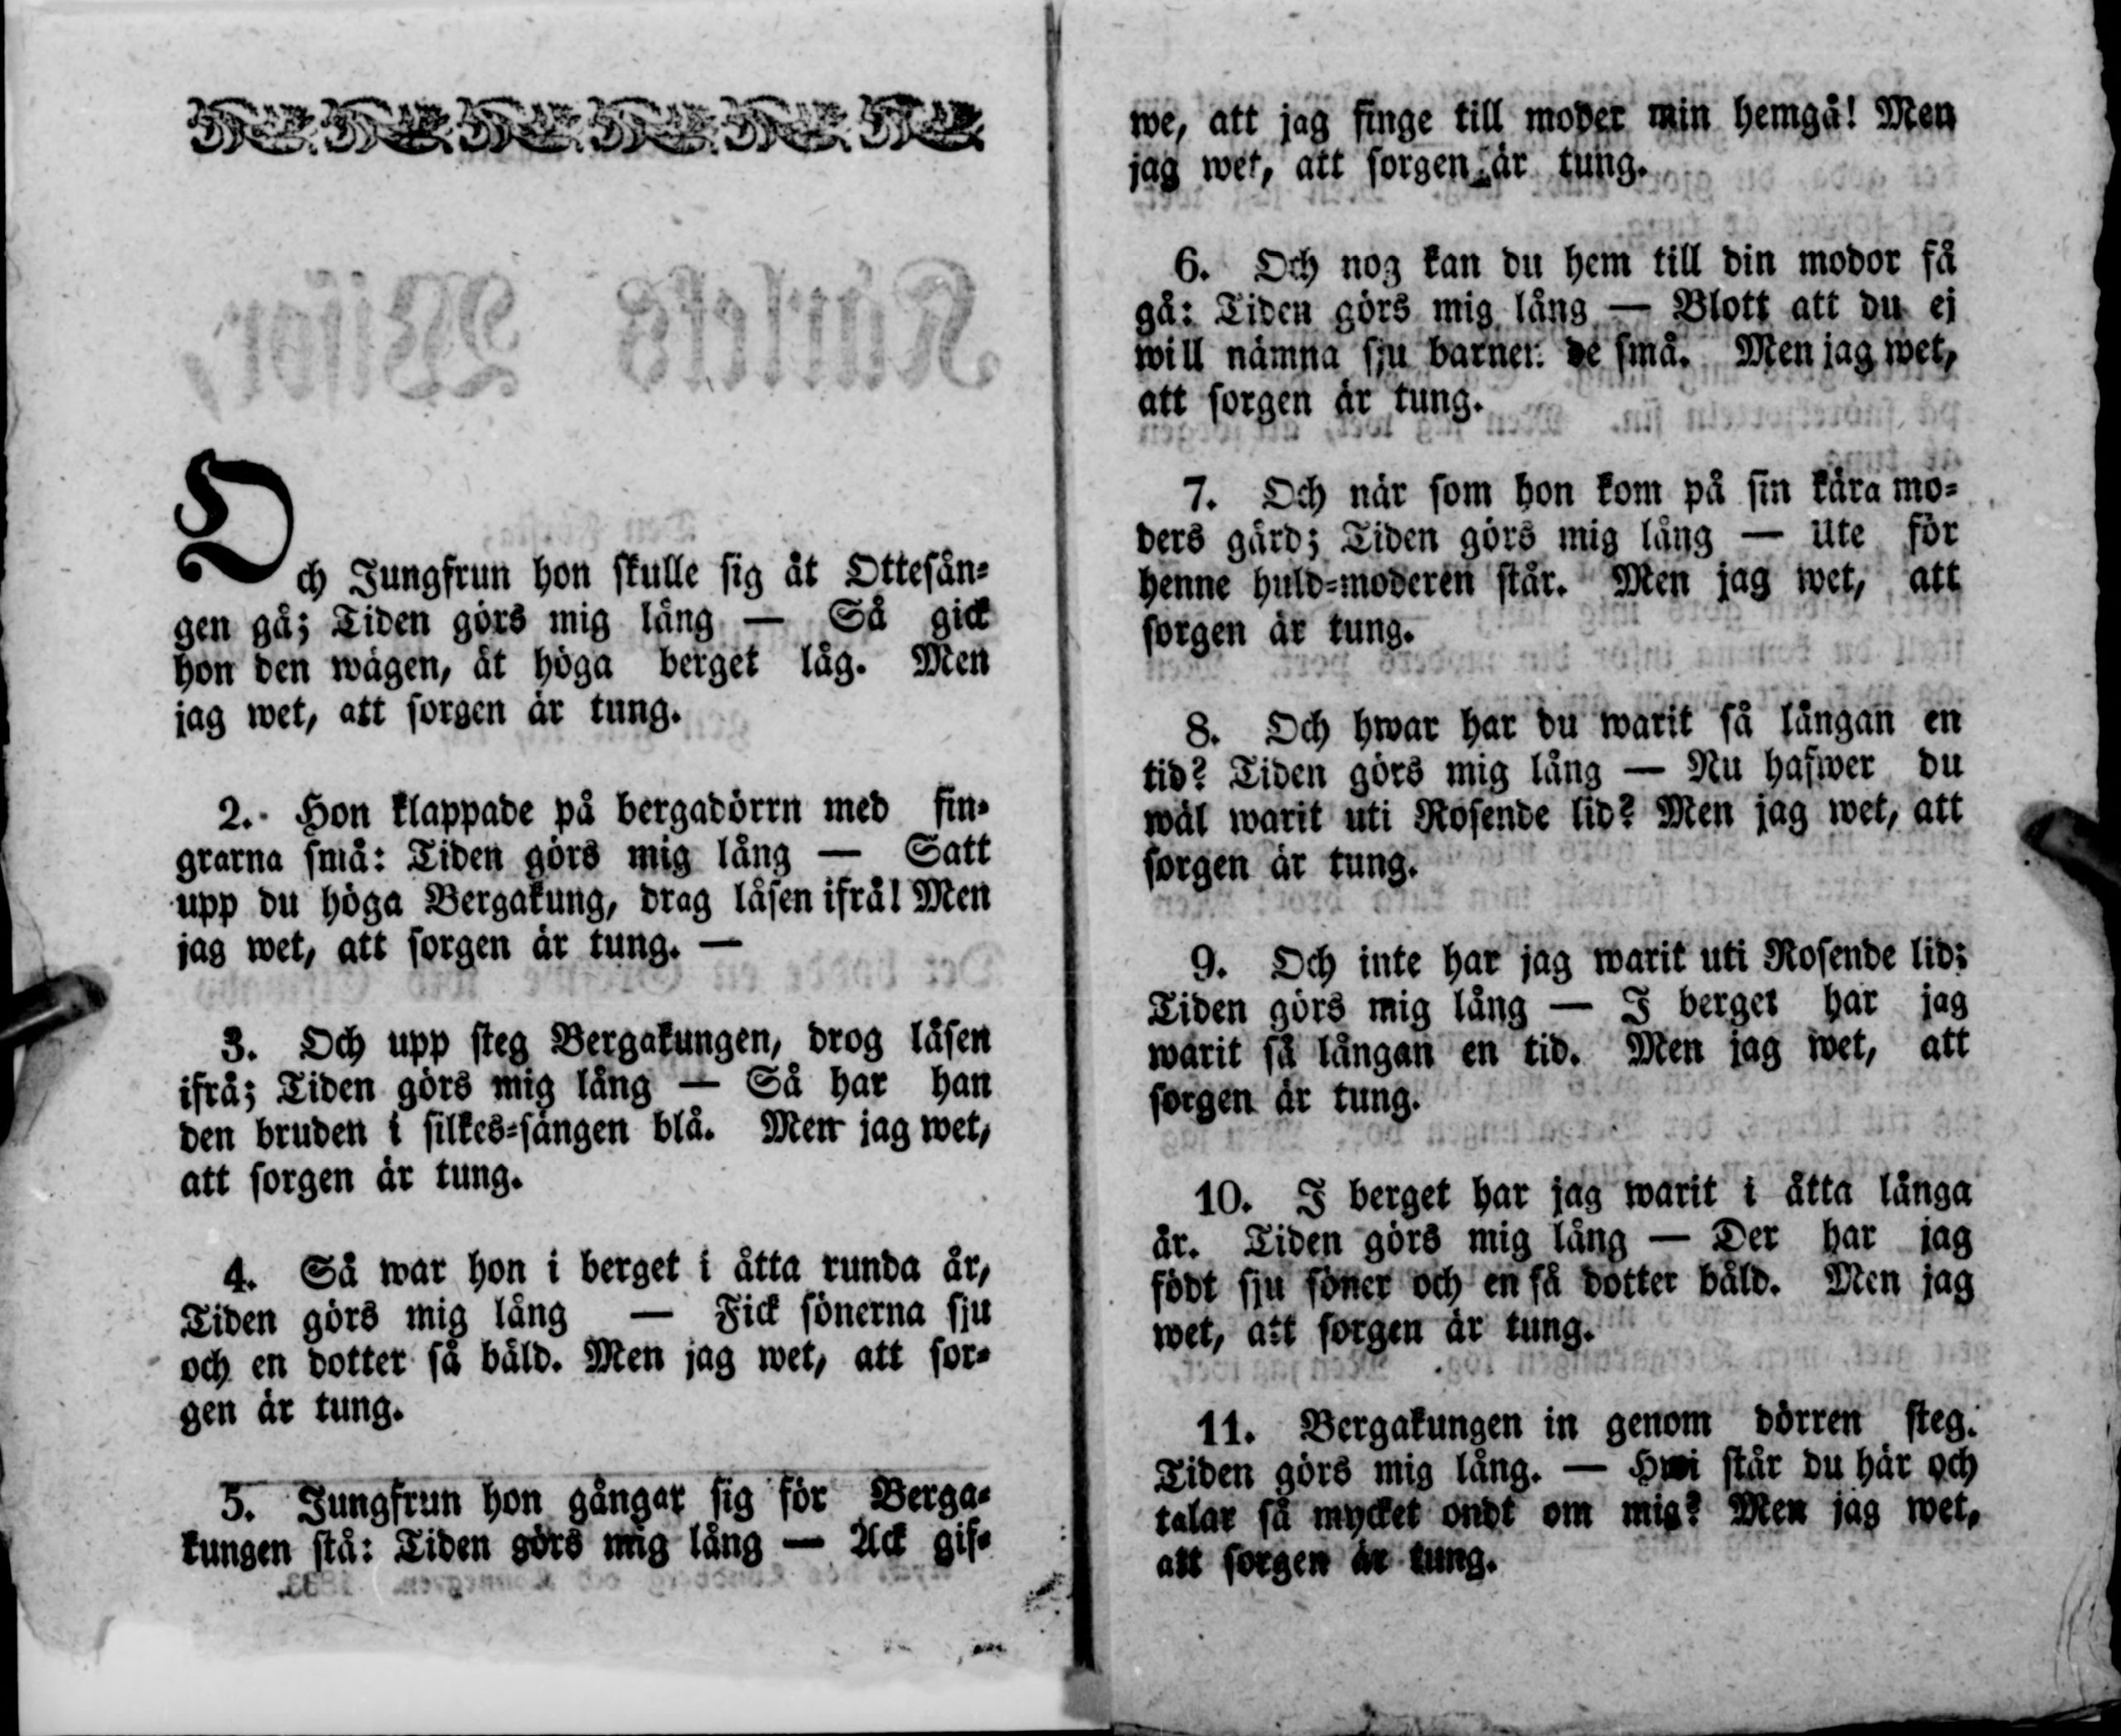 Och Jungfrun hon skulle sig åt Ottesån-
gen gå; Tiden görs mig lång — Så gick
hon den wägen, åt höga berget låg. Men
jag wet, att sorgen är tung.
2. Hon klappade på bergadörrn med fin-
grarna små: Tiden görs mig lång — Satt
upp du höga Bergakung, drag låsen ifrå! Men
jag wet, att sorgen är tung. —
3. Och upp steg Bergakungen, drog låsen
ifrå; Tiden görs mig lång — Så har han
den bruden i silkes-sängen blå. Men jag wet,
att sorgen är tung.
4. Så war hon i berget i åtta runda år,
Tiden görs mig lång — Fick sönerna sju
och en dotter så båld. Men jag wet, att sor-
gen är tung.
5. Jungfrun hon gångar sig för Berga-
kungen stå: Tiden görs mig lång — Ack gif-
we, att jag finge till moder min hemgå! Men
jag wet, att sorgen är tung.
6. Och nog kan du hem till din modor få
gå: Tiden görs mig lång — Blott att du ej
will nämna sju barnen de små. Men jag wet,
att sorgen är tung.
7. Och når som hon kom på sin kära mo-
ders gård; Tiden görs mig lång — Ute för
henne huld-moderen står. Men jag wet, att
sorgen är tung.
8. Och hwar har du warit så långan en
tid? Tiden görs mig lång — Nu hafwer du
wäl warit uti Rosende lid? Men jag wet, att
sorgen är tung.
9. Och inte har jag warit uti Rosende lid;
Tiden görs mig lång — I berget har jag
warit så långan en tid. Men jag wet, att
sorgen är tung.
10. I berget har jag warit i åtta långa
år. Tiden görs mig lång — Der har jag
födt sju söner och en så dotter båld. Men jag
wet, att sorgen är tung.
11. Bergakungen in genom dörren steg.
Tiden görs mig lång. — Hwi står du här och
talar så mycket ondt om mig? Men jag wet,
att sorgen är tung.